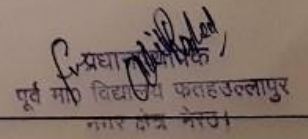 प्रधानाध्यापक
पूर्व मा० विद्यालय फतहउल्लापुर
नगर क्षेत्र मेरठ।